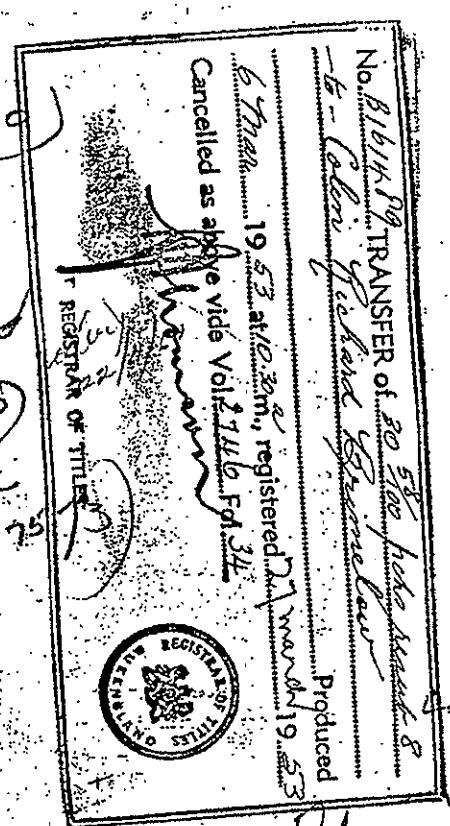 No. B161489 TRANSFER of 30 58/100 pchs resub 8
-to- Colin Richard Brimelow
Produced
6 Mar 1953 at 10.30 a m., registered 27 March 1953
Cancelled as above vide Vol. 2746 Fol. 34
REGISTRAR OF TITLES
REGISTRAR OF TITLES
QUEENSLAND
75